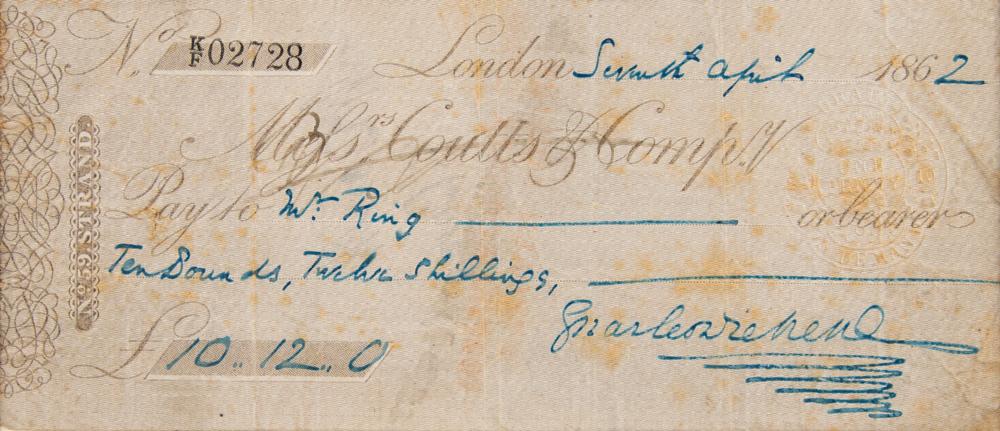 No. K/F 02728 London Seventh April 1862
Messrs. Coutts & Compy.
Pay to Mr. Ring or bearer
Ten Pounds, Twelve Shillings,
£10..12..0 Charles Dickens
No. 59 STRAND